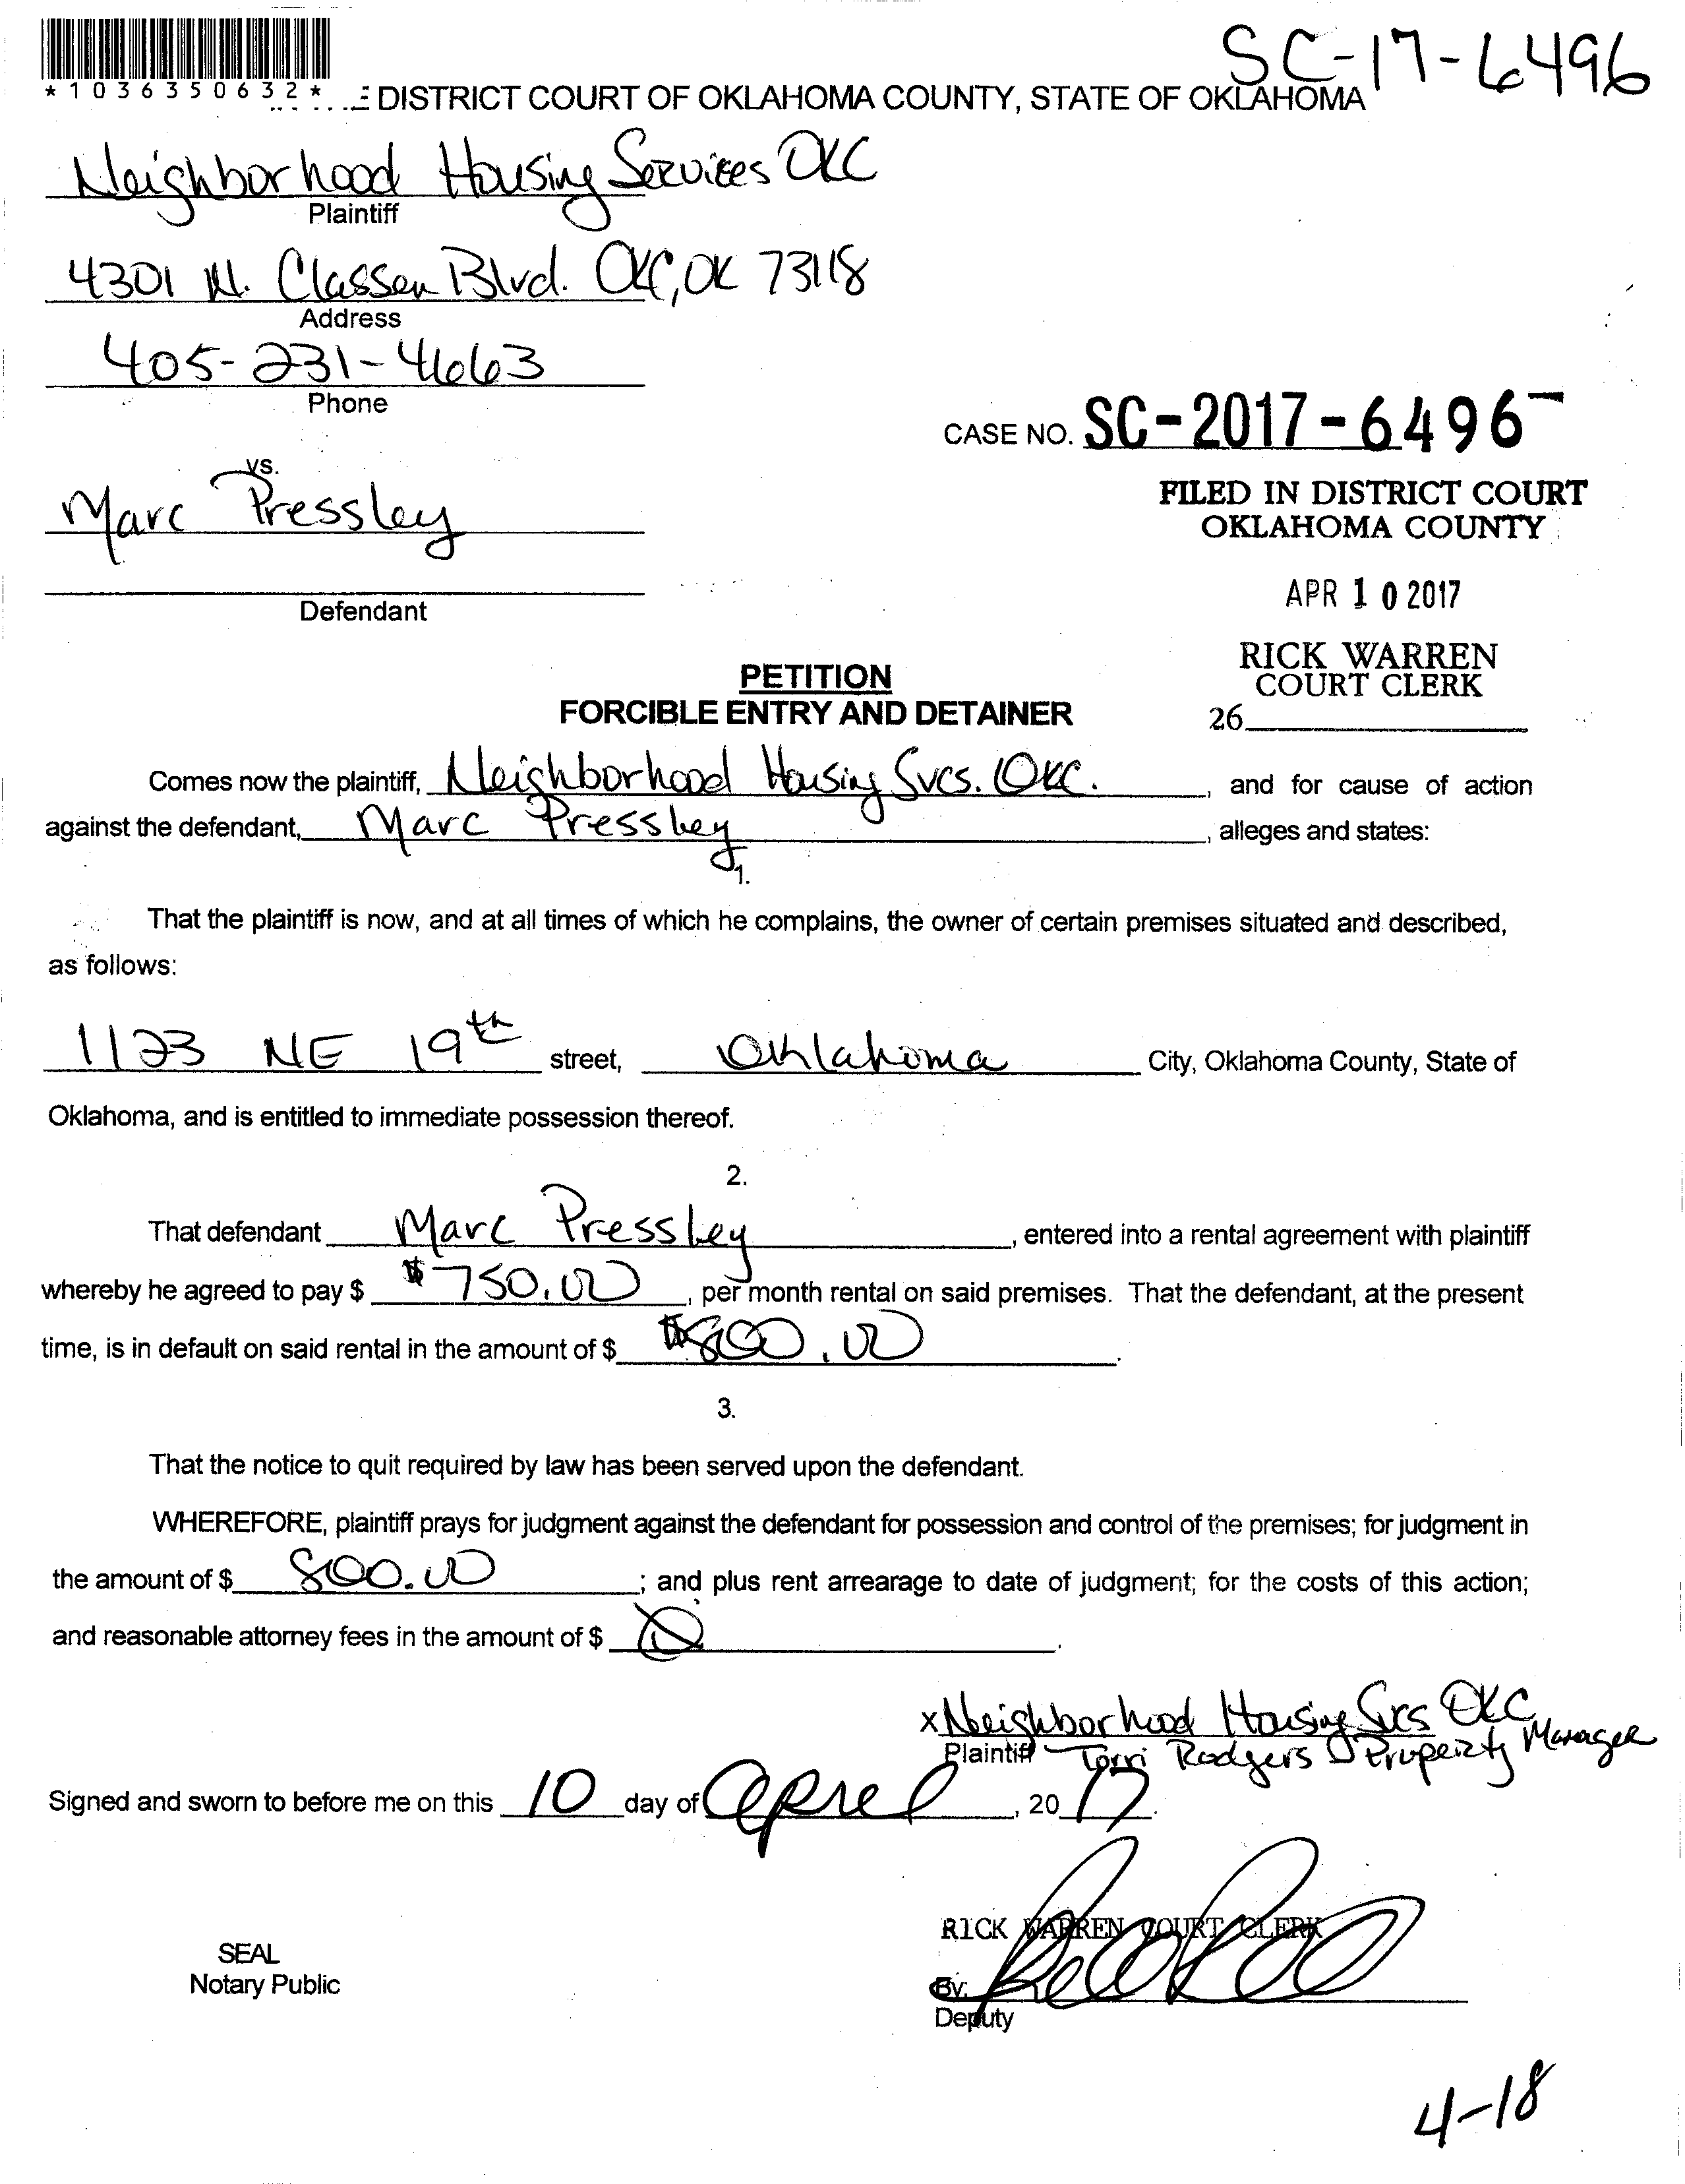 SC-17-6496
*1036350632*
E DISTRICT COURT OF OKLAHOMA COUNTY, STATE OF OKLAHOMA
Neighborhood Housing Services OKC
Plaintiff
4301 N. Classen Blvd. OKC, OK 73118
Address
405-231-4663
Phone
CASE NO. SC-2017-6496
vs.
Marc Pressley
Defendant
FILED IN DISTRICT COURT
OKLAHOMA COUNTY
APR 10 2017
RICK WARREN
COURT CLERK
26
PETITION
FORCIBLE ENTRY AND DETAINER
Comes now the plaintiff, Neighborhood Housing Svcs. OKC. , and for cause of action
against the defendant, Marc Pressley , alleges and states:
1.
That the plaintiff is now, and at all times of which he complains, the owner of certain premises situated and described,
as follows:
1123 NE 19th street, Oklahoma City, Oklahoma County, State of
Oklahoma, and is entitled to immediate possession thereof.
2.
That defendant Marc Pressley , entered into a rental agreement with plaintiff
whereby he agreed to pay $ $750.00 , per month rental on said premises. That the defendant, at the present
time, is in default on said rental in the amount of $ $800.00 .
3.
That the notice to quit required by law has been served upon the defendant.
WHEREFORE, plaintiff prays for judgment against the defendant for possession and control of the premises; for judgment in
the amount of $ 800.00 ; and plus rent arrearage to date of judgment; for the costs of this action;
and reasonable attorney fees in the amount of $ .
x Neighborhood Housing Svcs OKC
Plaintiff Torri Rodgers Property Manager
Signed and sworn to before me on this 10 day of April , 20 17.
RICK WARREN COURT CLERK
SEAL
Notary Public
By:
Deputy
4-18